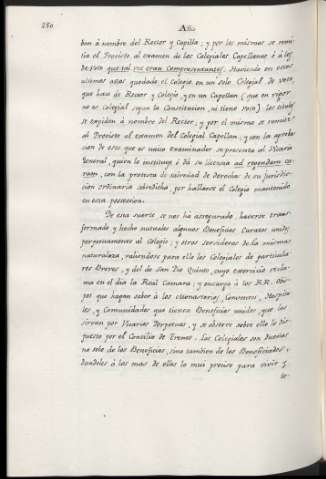 280
Año
ban á nombre del Rector y Capilla; y por los mismos se remi-
tia el Provisto al examen de los Colegiales Capellanes ó á los
de Voto que tal vez eran Comprensionantes. Haviendo en estos
ultimos años quedado el Colegio en un solo Colegial de voto,
que hace de Rector y Colegio, y en un Capellan (que en rigor
no es Colegial segun la Constitucion, ni tiene voto) los titulos
se expiden á nombre del Rector; y por el mismo se remite
al Provisto al examen del Colegial Capellan; y con la aproba-
cion de este que es unico examinador se presenta al Vicario
General, quien lo instituye ó dá su licencia ad
con la protesta de salvedad de derecho de su jurisdic-
cion ordinaria por hallarse el Colegio mantenido
en esta posesion.
De esta suerte se nos ha asegurado, haverse trans-
formado y hecho nutuales algunos Beneficios Curatos unidos
perpetuamente al Colegio; y otros servideros de la misma
naturaleza, valiendose para ello los Colegiales de particula-
res Breves, y del de San Pio Quinto, cuyo exercicio recla-
ma en el dia la Real Camara; y encarga á los R.R. Obis-
pos que hagan saber á los Monasterios, Conventos, Hospita-
les, y Comunidades que tienen Beneficios unidos, que los
sirvan por Vicarios Perpetuos, y se observe sobre ello lo dis-
puesto por el Concilio de Trento. Los Colegiales son dueños
no solo de los Beneficios, sino tambien de los Beneficiados,
dandoles á los mas de ellos lo mui preciso para vivir y